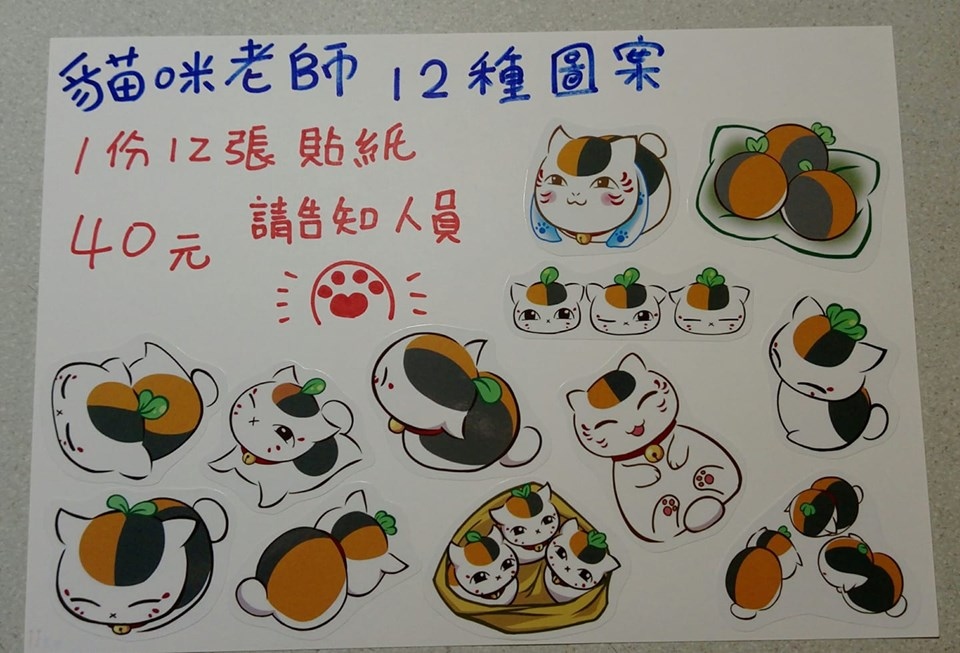 貓咪老師 12種圖案
1份12張 貼紙
40元 請告知人員